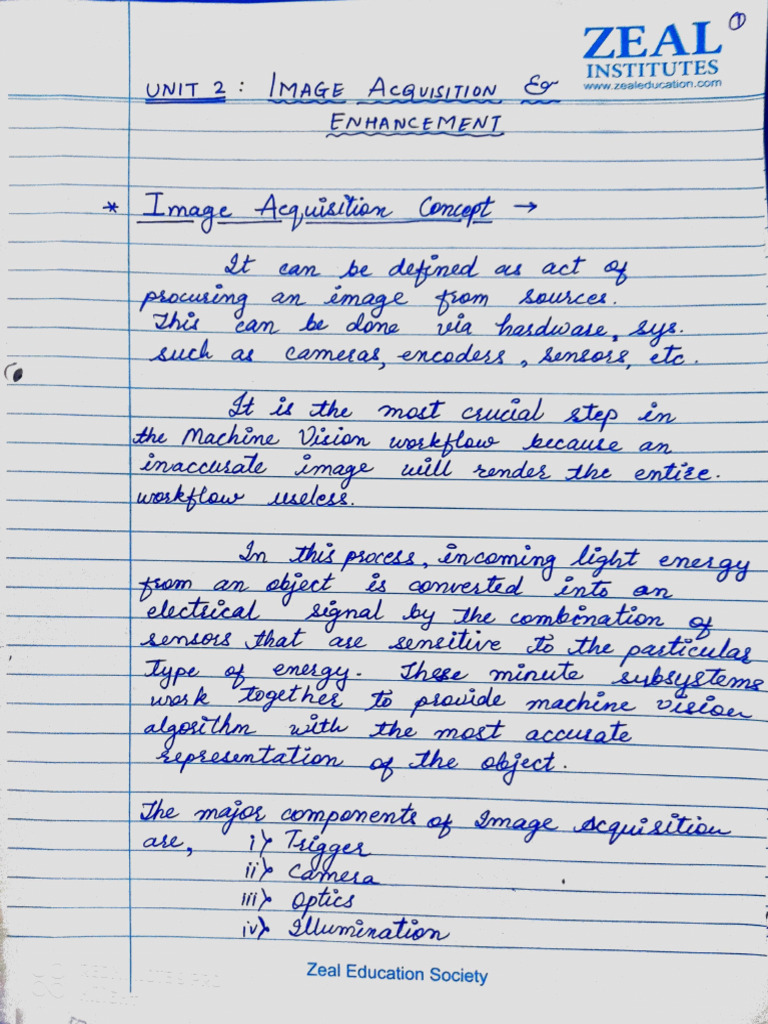 ①
ZEAL
INSTITUTES
www.zealeducation.com
UNIT 2 : IMAGE ACQUISITION &
ENHANCEMENT
* Image Acquisition Concept →
It can be defined as act of
procuring an image from sources.
This can be done via hardware, sys.
such as cameras, encoders, sensors, etc.
It is the most crucial step in
the Machine Vision workflow because an
inaccurate image will render the entire.
workflow useless.
In this process, incoming light energy
from an object is converted into an
electrical signal by the combination of
sensors that are sensitive to the particular
type of energy. These minute subsystems
work together to provide machine vision
algorithm with the most accurate
representation of the object.
The major components of Image Acquisition
are, i) Trigger
ii) Camera
iii) Optics
iv) Illumination
Zeal Education Society